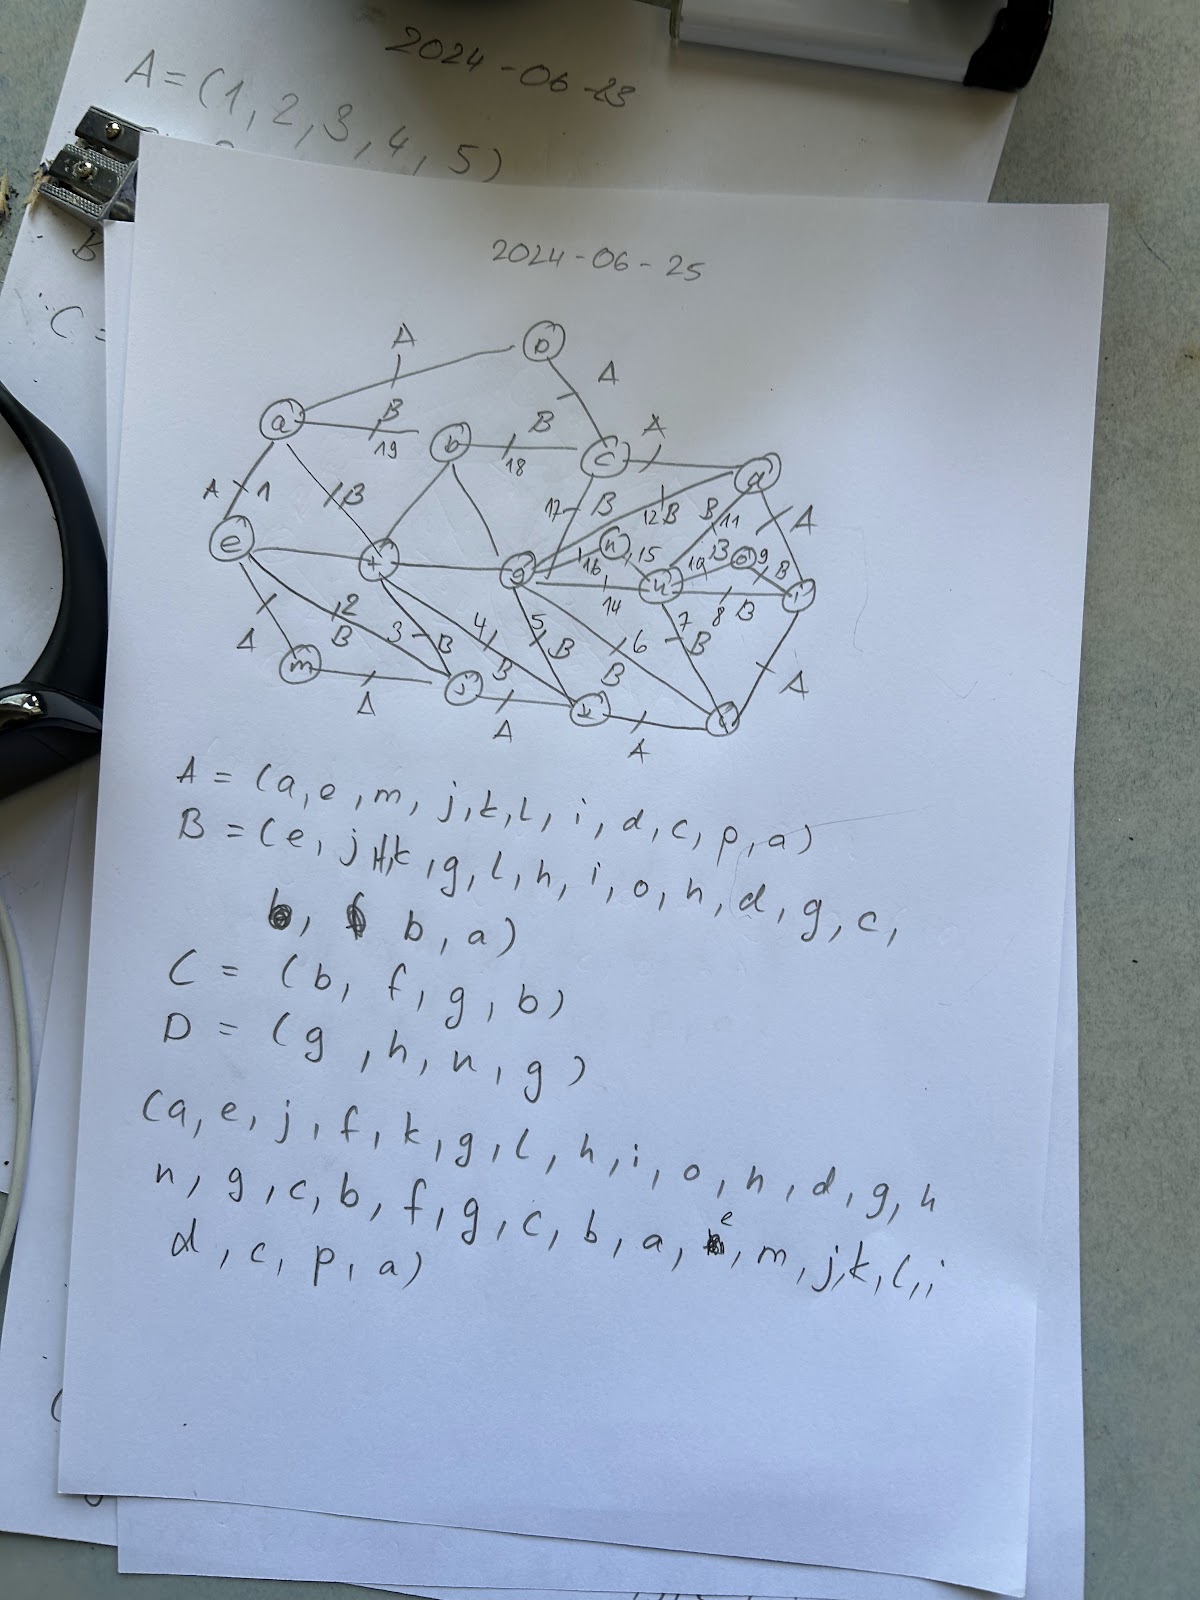 2024-06-23
A = (1, 2, 3, 4, 5)
B
C =
2024-06-25
A
p
A
a
B
19
b
B
18
c
A
d
A
1
B
12
B
12
B
B
11
A
e
f
g
n
16
15
h
10
B
o
9
B
i
14
8
B
2
B
3
B
4
B
5
B
6
B
7
B
A
A
m
A
j
A
k
A
l
A = (a, e, m, j, k, l, i, d, c, p, a)
B = (e, j, f, k, g, l, h, i, o, h, d, g, c,
b, a)
C = (b, f, g, b)
D = (g, h, n, g)
(a, e, j, f, k, g, l, h, i, o, h, d, g, h
n, g, c, b, f, g, c, b, a, e, m, j, k, l, i
d, c, p, a)